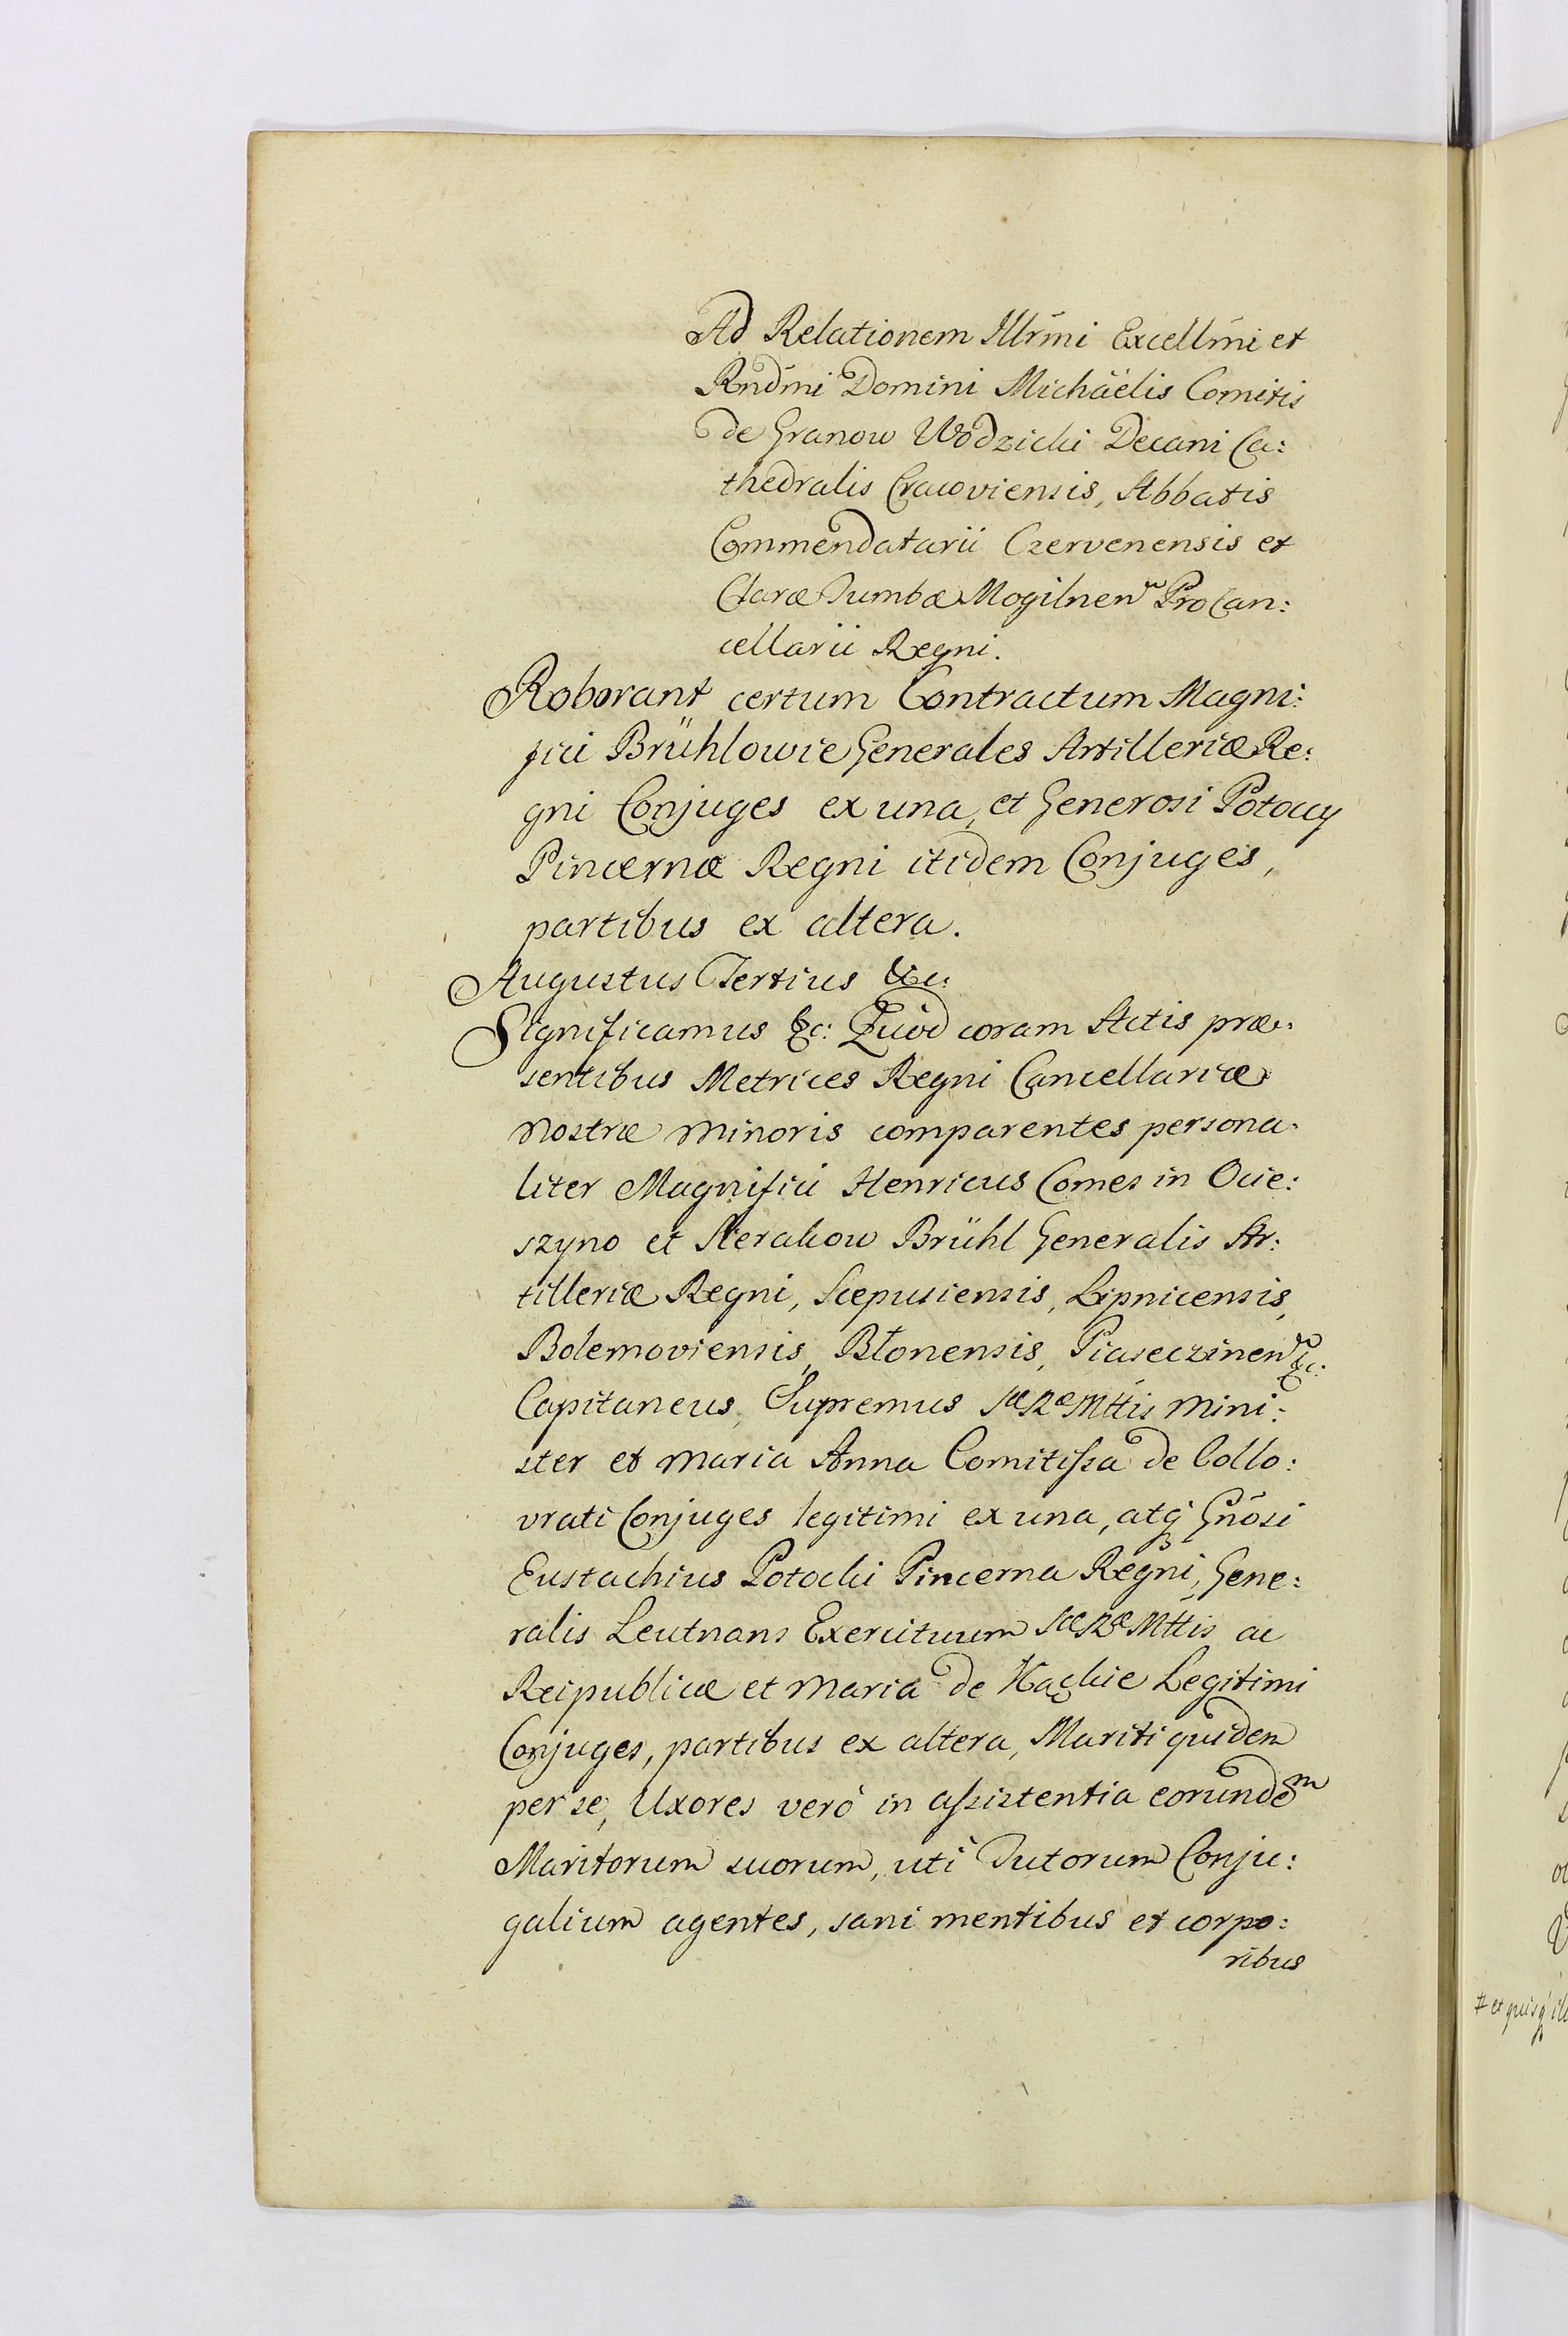 Ad Relationem Illr̃mi Excellm̃i et
Rnd̃mi Domini Michäelis Comitis
de Granow Wodzicki Decani Ca:
thedralis Cracoviensis, Abbatis
Commendatarii Czervenensis et
Claræ Tumbæ Mogilnen ProCan:
cellarii Regni.
Roborant certum Contractum Magni:
fici Brühlowie Generales Artilleriæ Re:
gni Conjuges ex una, et Generosi Potoccy
Pincernæ Regni itidem Conjuges,
partibus ex altera.
Augustus Tertius &c:
Significamus &c: Quod coram Actis præ:
sentibus Metrices Regni Cancellariæ
Nostræ Minoris comparentes persona:
liter Magnifici Henricus Comes in Ocie:
szyno et Sierakow Brühl Generalis Ar:
tilleriæ Regni, Scepusiensis, Lipnicensis,
Bolemoviensis, Błonensis, Piaseczinen &c:
Capitaneus, Supremus SæRæMttis Mini:
ster et Maria Anna Comitissa de Collo:
vrati Conjuges legitimi ex una, atq Gnõsi
Eustachius Potocki Pincerna Regni, Gene:
ralis Leutnans Exercituum SæRæMttis ac
Reipublicæ et Maria de Kąckie Legitimi
Conjuges, partibus ex altera, Mariti quidem
per se, Uxores verò in assistentia eorundem
Maritorum suorum, uti Tutorum Conju:
galium agentes, sani mentibus et corpo:
ribus
# et quisq